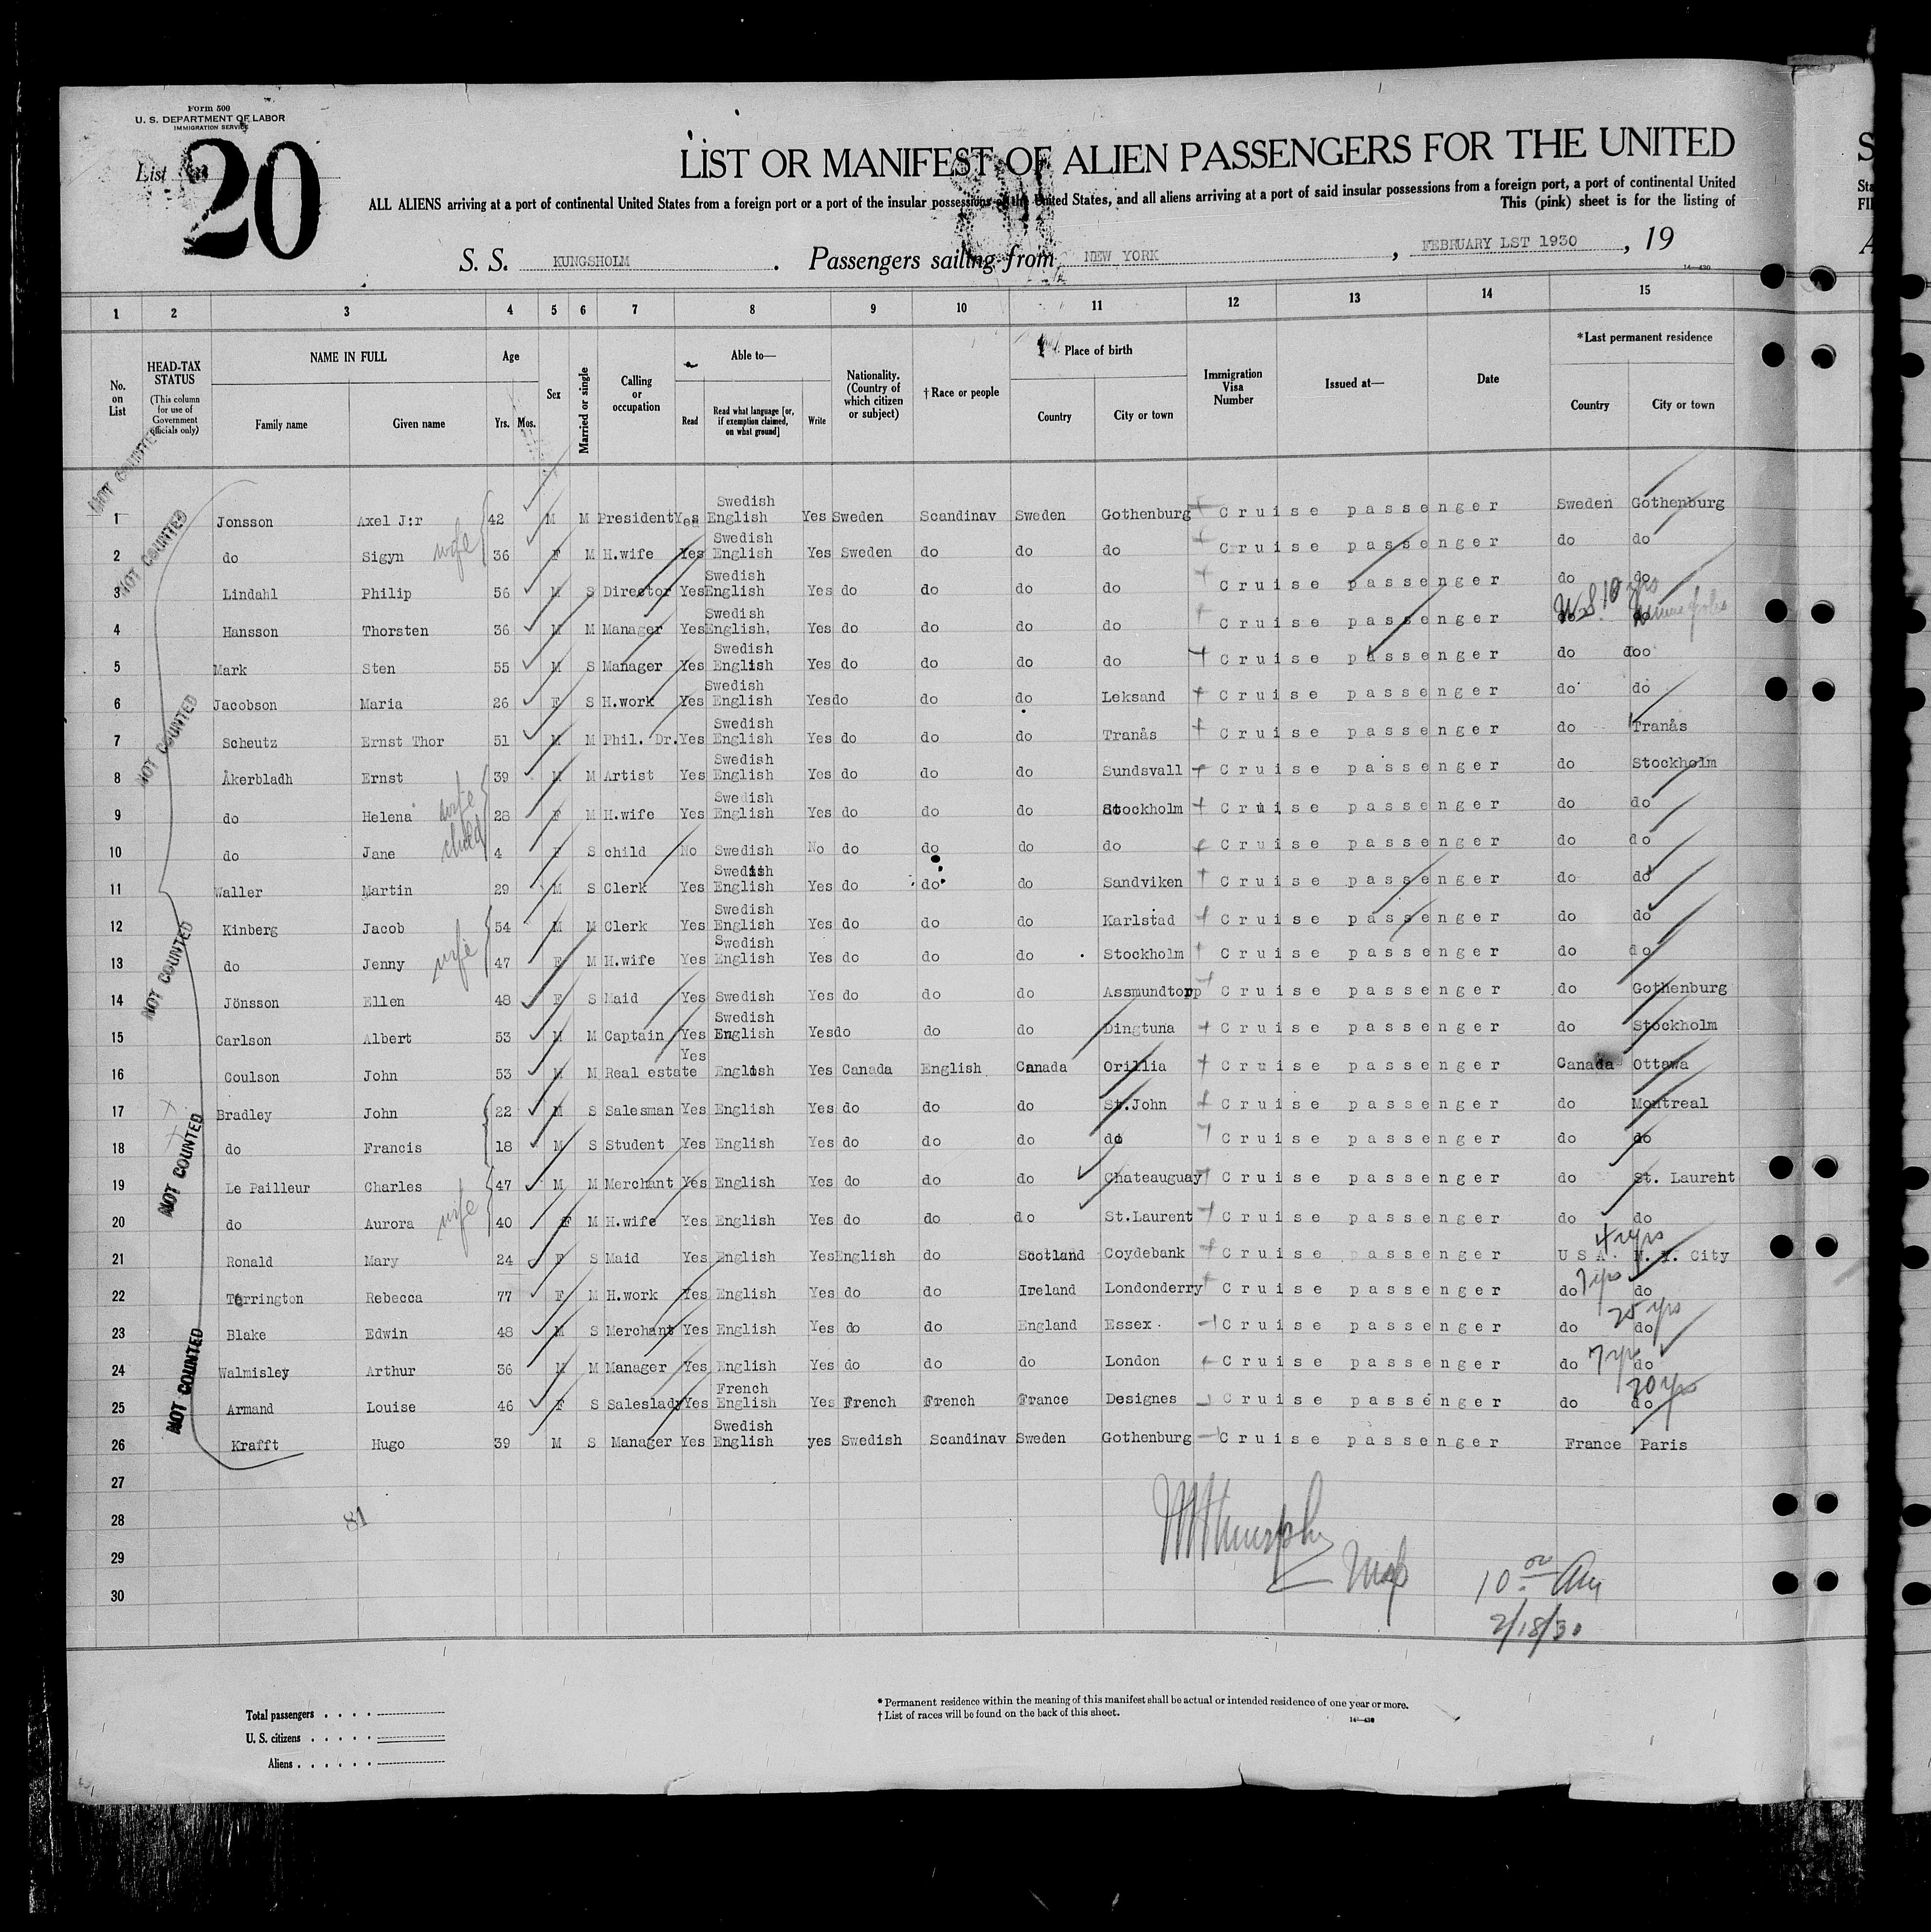 Form 500
U. S. DEPARTMENT OF LABOR
IMMIGRATION SERVICE
List
20
LIST OR MANIFEST OF ALIEN PASSENGERS FOR THE UNITED
ALL ALIENS arriving at a port of continental United States from a foreign port or a port of the insular possessions of the United States, and all aliens arriving at a port of said insular possessions from a foreign port, a port of continental United
This (pink) sheet is for the listing of
S. S. KUNGSHOLM . Passengers sailing from NEW YORK , FEBRUARY LST 1930 , 19
14—430
1 2 3 4 5 6 7 8 9 10 11 12 13 14 15
No. on List
HEAD-TAX STATUS
(This column for use of Government officials only)
NAME IN FULL
Family name Given name
Age
Yrs. Mos.
Sex
Married or single
Calling or occupation
Able to—
Read Read what language [or, if exemption claimed, on what ground] Write
Nationality. (Country of which citizen or subject)
† Race or people
Place of birth
Country City or town
Immigration Visa Number
Issued at—
Date
*Last permanent residence
Country City or town
1 Jonsson Axel J:r 42 M M President Yes Swedish English Yes Sweden Scandinav Sweden Gothenburg Cruise passenger Sweden Gothenburg
2 do Sigyn wife 36 F M H.wife Yes Swedish English Yes Sweden do do do Cruise passenger do do
3 Lindahl Philip 56 M S Director Yes Swedish English Yes do do do do Cruise passenger do do
4 Hansson Thorsten 36 M M Manager Yes Swedish English, Yes do do do do Cruise passenger do do U.S. 10 yrs
5 Mark Sten 55 M S Manager Yes Swedish English Yes do do do do Cruise passenger do doo
6 Jacobson Maria 26 F S H.work Yes Swedish English Yes do do do Leksand Cruise passenger do do
7 Scheutz Ernst Thor 51 M M Phil. Dr. Yes Swedish English Yes do do do Tranås Cruise passenger do Tranås
8 Åkerbladh Ernst 39 M M Artist Yes Swedish English Yes do do do Sundsvall Cruise passenger do Stockholm
9 do Helena wife 28 F M H.wife Yes Swedish English Yes do do do Stockholm Cruise passenger do do
10 do Jane child 4 F S child No Swedish No do do do do Cruise passenger do do
11 Waller Martin 29 M S Clerk Yes Swedish English Yes do do do Sandviken Cruise passenger do do
12 Kinberg Jacob 54 M M Clerk Yes Swedish English Yes do do do Karlstad Cruise passenger do do
13 do Jenny wife 47 F M H.wife Yes Swedish English Yes do do do Stockholm Cruise passenger do do
14 Jönsson Ellen 48 F S Maid Yes Swedish Yes do do do Assmundtorp Cruise passenger do Gothenburg
15 Carlson Albert 53 M M Captain Yes Swedish English Yes do do do Dingtuna Cruise passenger do Stockholm
16 Coulson John 53 M M Real estate Yes English Yes Canada English Canada Orillia Cruise passenger Canada Ottawa
17 Bradley John 22 M S Salesman Yes English Yes do do do St.John Cruise passenger do Montreal
18 do Francis 18 M S Student Yes English Yes do do do do Cruise passenger do do
19 Le Pailleur Charles 47 M M Merchant Yes English Yes do do do Chateauguay Cruise passenger do St. Laurent
20 do Aurora wife 40 F M H.wife Yes English Yes do do do St.Laurent Cruise passenger do do
21 Ronald Mary 24 F S Maid Yes English Yes English do Scotland Coydebank Cruise passenger U S A. N. Y. City 4 yrs
22 Torrington Rebecca 77 F M H.work Yes English Yes do do Ireland Londonderry Cruise passenger do do 7 yrs
23 Blake Edwin 48 M S Merchant Yes English Yes do do England Essex Cruise passenger do do 25 yrs
24 Walmisley Arthur 36 M M Manager Yes English Yes do do do London Cruise passenger do do 7 yrs
25 Armand Louise 46 F S Saleslady Yes French English Yes French French France Designes Cruise passenger do do 20 yrs
26 Krafft Hugo 39 M S Manager Yes Swedish English yes Swedish Scandinav Sweden Gothenburg Cruise passenger France Paris
27
28 81
29
30
NOT COUNTED
NOT COUNTED
NOT COUNTED
NOT COUNTED
NOT COUNTED
NOT COUNTED
10 00 Am
2/18/30
Total passengers
U. S. citizens
Aliens
* Permanent residence within the meaning of this manifest shall be actual or intended residence of one year or more.
† List of races will be found on the back of this sheet.
14—430